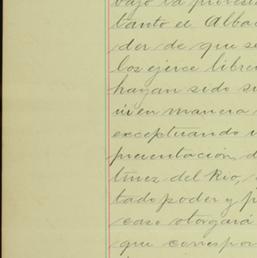 bajo la protes
tanto el Alba
der de que se
los ejerce libre
hayan sido su
ni en manera
exceptuando
presentación d
tinez del Rio,
tado poder y p
caso otorgará
que correspon